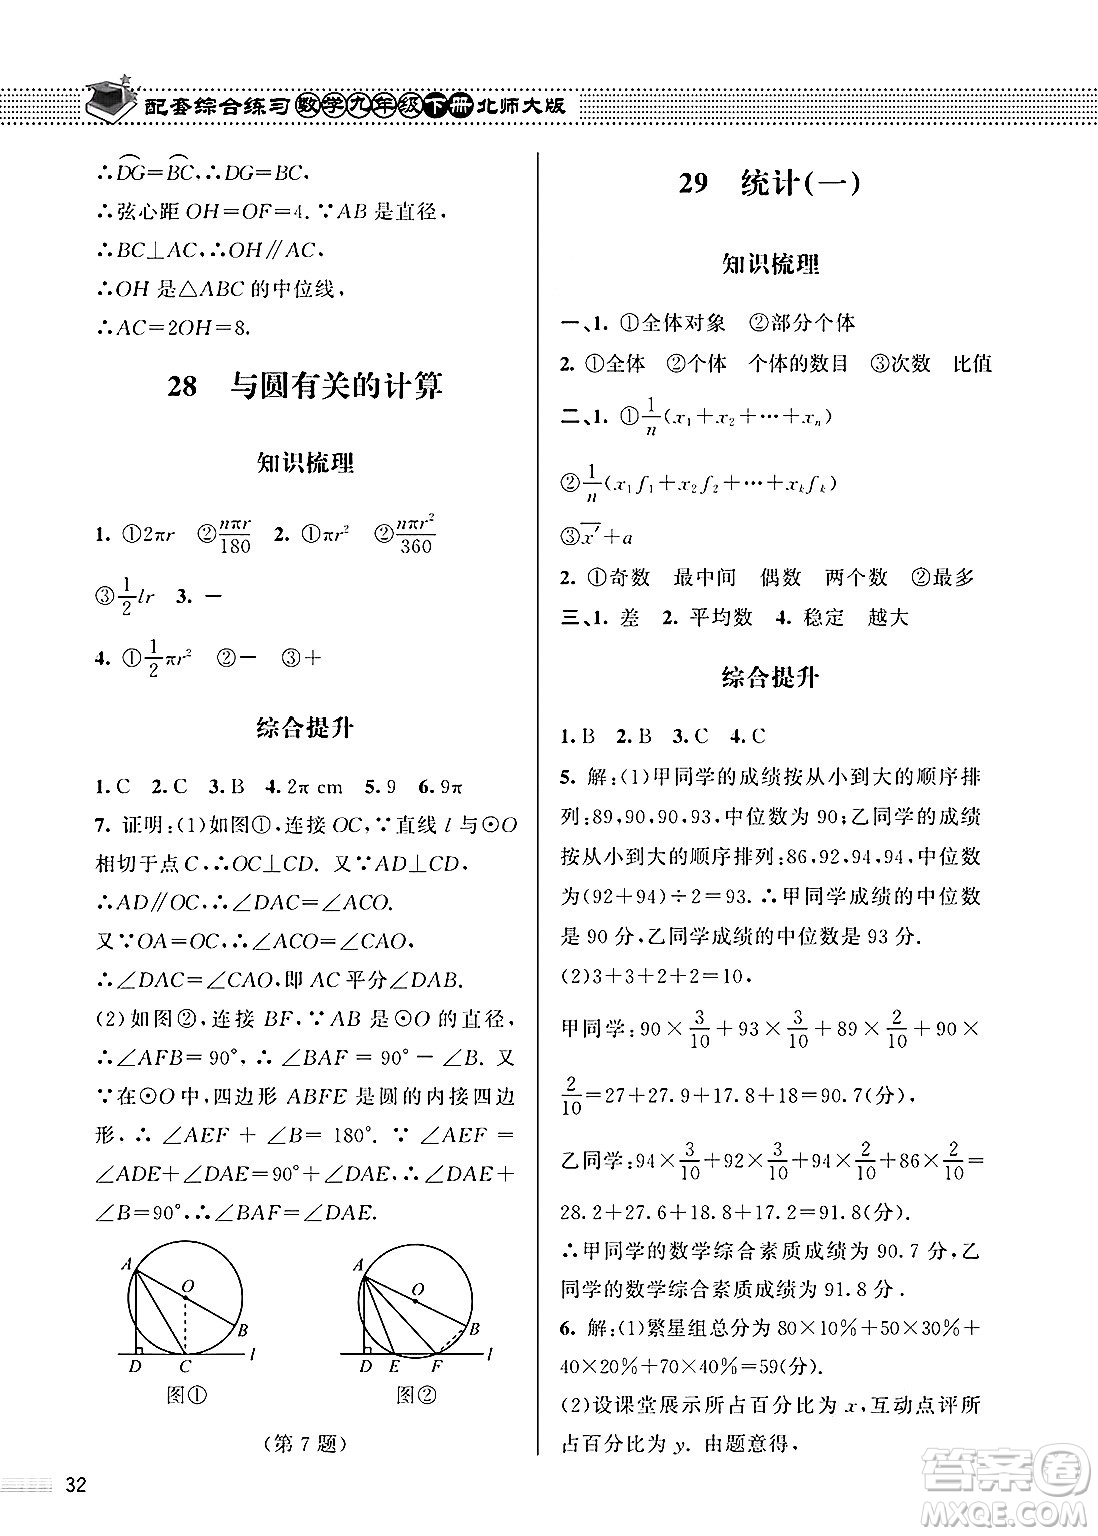 配套综合练习数学九年级下册北师大版
∴DG⌒=BC⌒,∴DG=BC,
∴弦心距 OH=OF=4. ∵AB 是直径,
∴BC⊥AC,∴OH∥AC,
∴OH 是△ABC 的中位线,
∴AC=2OH=8.
28 与圆有关的计算
知识梳理
1. ①2πr ②nπr/180 2. ①πr² ②nπr²/360
③1/2lr 3. －
4. ①1/2πr² ②－ ③＋
综合提升
1. C 2. C 3. B 4. 2π cm 5. 9 6. 9π
7. 证明:(1)如图①,连接 OC,∵直线 l 与⊙O
相切于点 C,∴OC⊥CD. 又∵AD⊥CD,
∴AD∥OC,∴∠DAC=∠ACO.
又∵OA=OC,∴∠ACO=∠CAO,
∴∠DAC=∠CAO,即 AC 平分∠DAB.
(2)如图②,连接 BF,∵AB 是⊙O 的直径,
∴∠AFB=90°,∴∠BAF=90°－∠B. 又
∵在⊙O 中,四边形 ABFE 是圆的内接四边
形,∴∠AEF＋∠B=180°. ∵∠AEF=
∠ADE＋∠DAE=90°＋∠DAE,∴∠DAE＋
∠B=90°,∴∠BAF=∠DAE.
A O B D C l
图①
A O B D E F l
图②
(第 7 题)
32
29 统计(一)
知识梳理
一、1. ①全体对象 ②部分个体
2. ①全体 ②个体 个体的数目 ③次数 比值
二、1. ①1/n(x₁＋x₂＋…＋xₙ)
②1/n(x₁f₁＋x₂f₂＋…＋xₖfₖ)
③x̄′＋a
2. ①奇数 最中间 偶数 两个数 ②最多
三、1. 差 2. 平均数 4. 稳定 越大
综合提升
1. B 2. B 3. C 4. C
5. 解:(1)甲同学的成绩按从小到大的顺序排
列:89,90,90,93,中位数为 90;乙同学的成绩
按从小到大的顺序排列:86,92,94,94,中位数
为(92＋94)÷2=93. ∴甲同学成绩的中位数
是 90 分,乙同学成绩的中位数是 93 分.
(2)3＋3＋2＋2=10,
甲同学:90×3/10＋93×3/10＋89×2/10＋90×
2/10=27＋27.9＋17.8＋18=90.7(分),
乙同学:94×3/10＋92×3/10＋94×2/10＋86×2/10=
28.2＋27.6＋18.8＋17.2=91.8(分).
∴甲同学的数学综合素质成绩为 90.7 分,乙
同学的数学综合素质成绩为 91.8 分.
6. 解:(1)繁星组总分为 80×10%＋50×30%＋
40×20%＋70×40%=59(分).
(2)设课堂展示所占百分比为 x,互动点评所
占百分比为 y. 由题意得,
答案圈
MXQE.COM